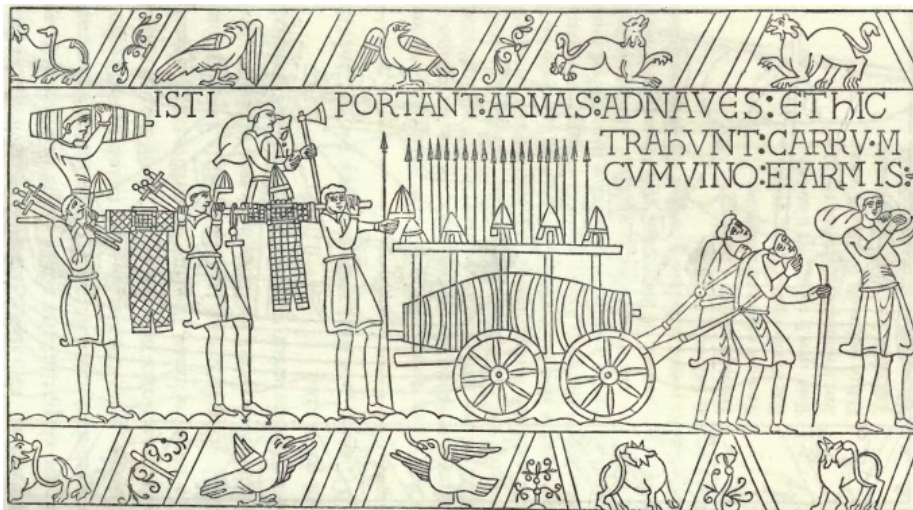 ISTI PORTANT:ARMAS:ADNAVES:EThIC
TRAhVNT:CARRV·M
CVMVINO:ETARMIS: